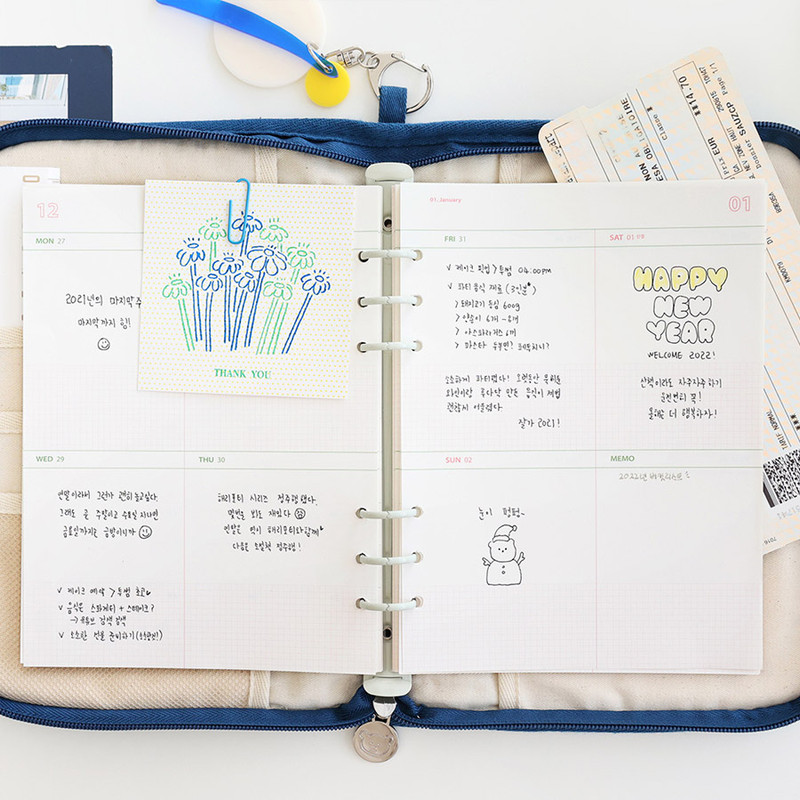 12
MON 27
2021년의 마지막주
마지막까지 힘!
THANK YOU
WED 29
연말이라서 그런가 괜히 놀고싶다.
그래도 곧 주말이고 수요일 지나면
금요일까지는 금방이니까
v 케이크 예약 > 투썸 초코♥
v 음식은 스파게티 + 스테이크?
→ 유튜브 검색 검색
v 소소한 선물 준비하기
THU 30
해리포터 시리즈 정주행했다.
몇번을 봐도 재밌다
연말은 역시 해리포터와함께
다음은 소설책 정주행!
01. January
01
FRI 31
v 케이크 픽업 > 투썸 04:00pm
v 파티 음식 재료 (3인분)
> 돼지고기 등심 600g
> 양송이 6개-8개
> 아스파라거스 6개
> 파스타
소소하게 파티했다! 오랜만에
와인이랑
괜찮게 어울렸다.
잘가 2021!
SAT 01
HAPPY
NEW
YEAR
WELCOME 2022!
산책이라도 자주자주하기
운전면허 꼭!
올해는 더 행복하자!
SUN 02
눈이 펑펑~
MEMO
2022년 버킷리스트
Page 1/1
Dossier
SAUZCP
Classe
Prix EUR
**114.70